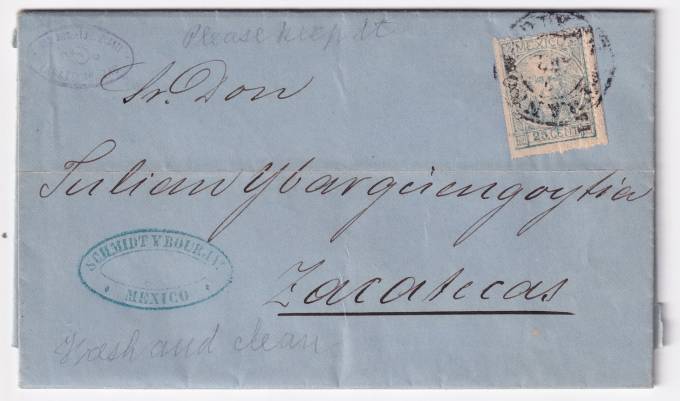 Please keep it
Sr. Don
MEXICO
25 CENT
FRANCO
Julian Ybargüengoytia
SCHMIDT Y BOURJAU.
MEXICO
Zacatecas
Wash and clean